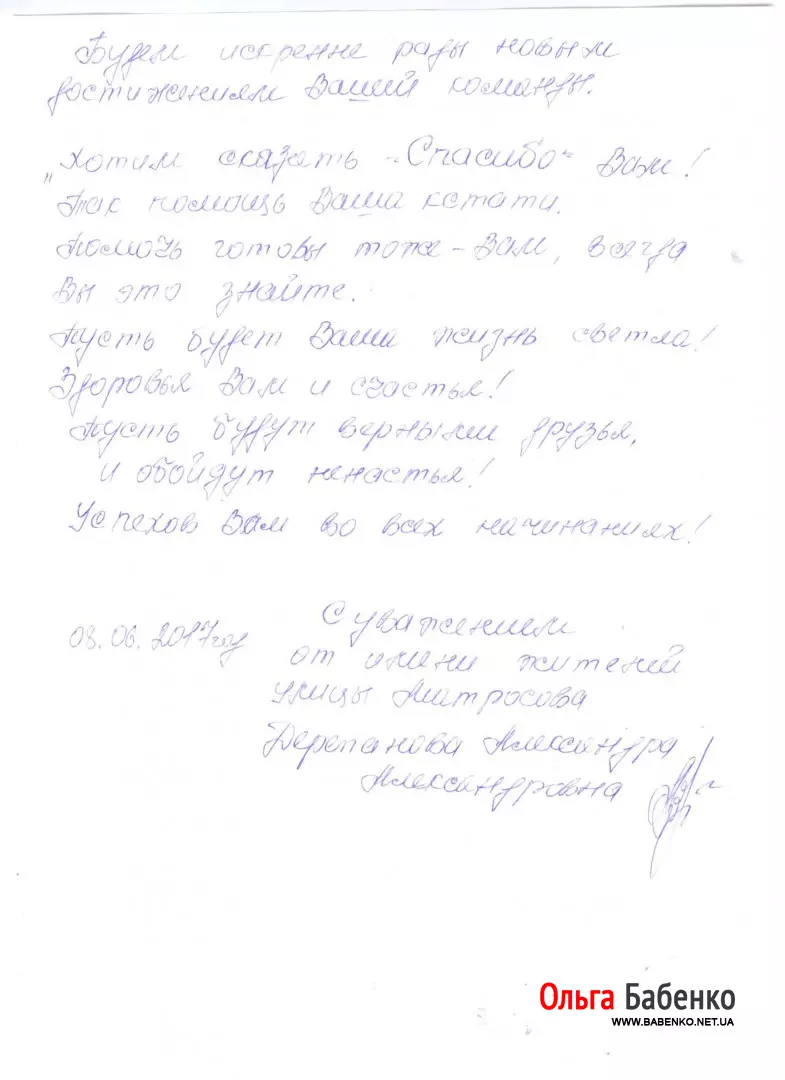 Будем искренне рады новым
достижениям Вашей команды.
„Хотим сказать -„Спасибо“ Вам!
Так помощь Ваша кстати.
Помочь готовы тоже - Вам, всегда
Вы это знайте.
Пусть будет Ваша жизнь светла!
Здоровья Вам и счастья!
Пусть будут верными друзья,
и обойдут ненастья!
Успехов Вам во всех начинаниях!
С уважением
08.06.2017год
от имени жителей
улицы Матросова
Дерепанова Александра
Александровна
Ольга Бабенко
WWW.BABENKO.NET.UA